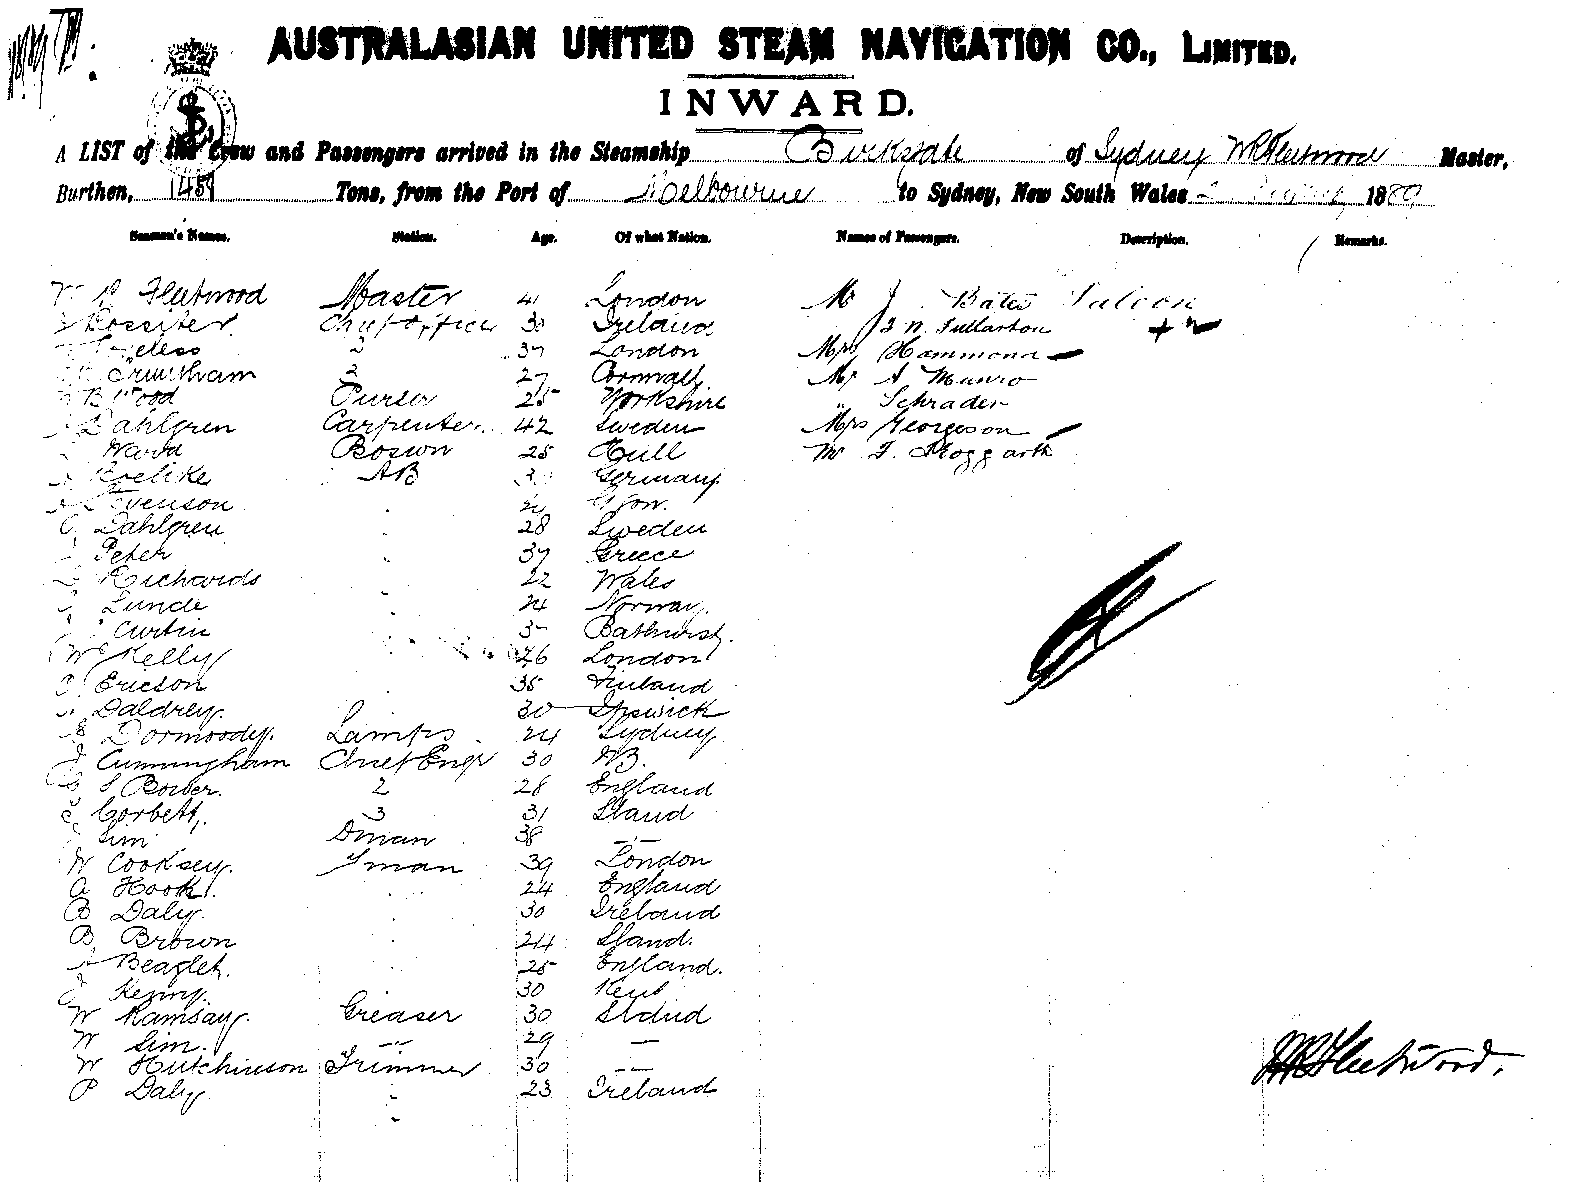 AUSTRALASIAN UNITED STEAM NAVIGATION CO., LIMITED.
INWARD.
A LIST of the Crew and Passengers arrived in the Steamship Birksgate of Sydney W R Fleetwood Master,
Burthen, 1459 Tons, from the Port of Melbourne to Sydney, New South Wales 2 1889
Seamen's Names. Station. Age. Of what Nation. Names of Passengers. Description. Remarks.
W R Fleetwood Master 41 London Mr J Bates Saloon
Rossiter Chief officer 30 Ireland J N. Fullarton
2 37 London Mrs Hammond
Grantham 3 27 Cornwall Mr A Munro
B Wood Purser 25 Yorkshire " Schrader
Dahlgren Carpenter 42 Sweden Mrs Georgeson
Ward Bosun 25 Hull Mr F. Froggarth
Roelike AB Germany
Stevenson Gow.
C Dahlgren 28 Sweden
Peter 37 Greece
Richards 22 Wales
Lunde 24 Norway.
Curtin Bathurst.
Wm Kelly 26 London
C Ericson 35 Finland
Daldrey. 30 Ipswick
Dormoody. Lamps 24 Sydney
J Cunningham Chief Engr 30 NB.
G S Bower. 2 28 England
Corbett, 3 31 Sland
Sim Dman 38 —
W Cooksey. Fman 39 London
A Hook. 24 England
B Daly. 30 Ireland
B Brown 24 Sland.
A Beagley. 25 England.
J Kenny. 30 Kent
W Ramsay. Greaser 30 Sldnd
W Sim. " 29 —
W Hutchinson Trimmer 30 —
P Daly " 23 Ireland
W R Fleetwood.